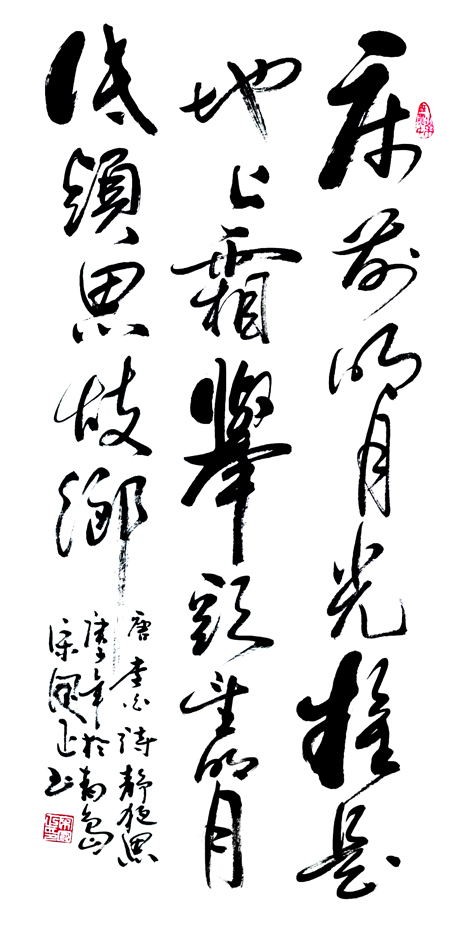 床前明月光疑是
地上霜舉頭望明月
低頭思故鄉
唐李白詩靜夜思
庚子年於青島
宋